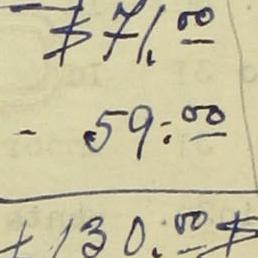 $71.00
- 59.00
130.00 $